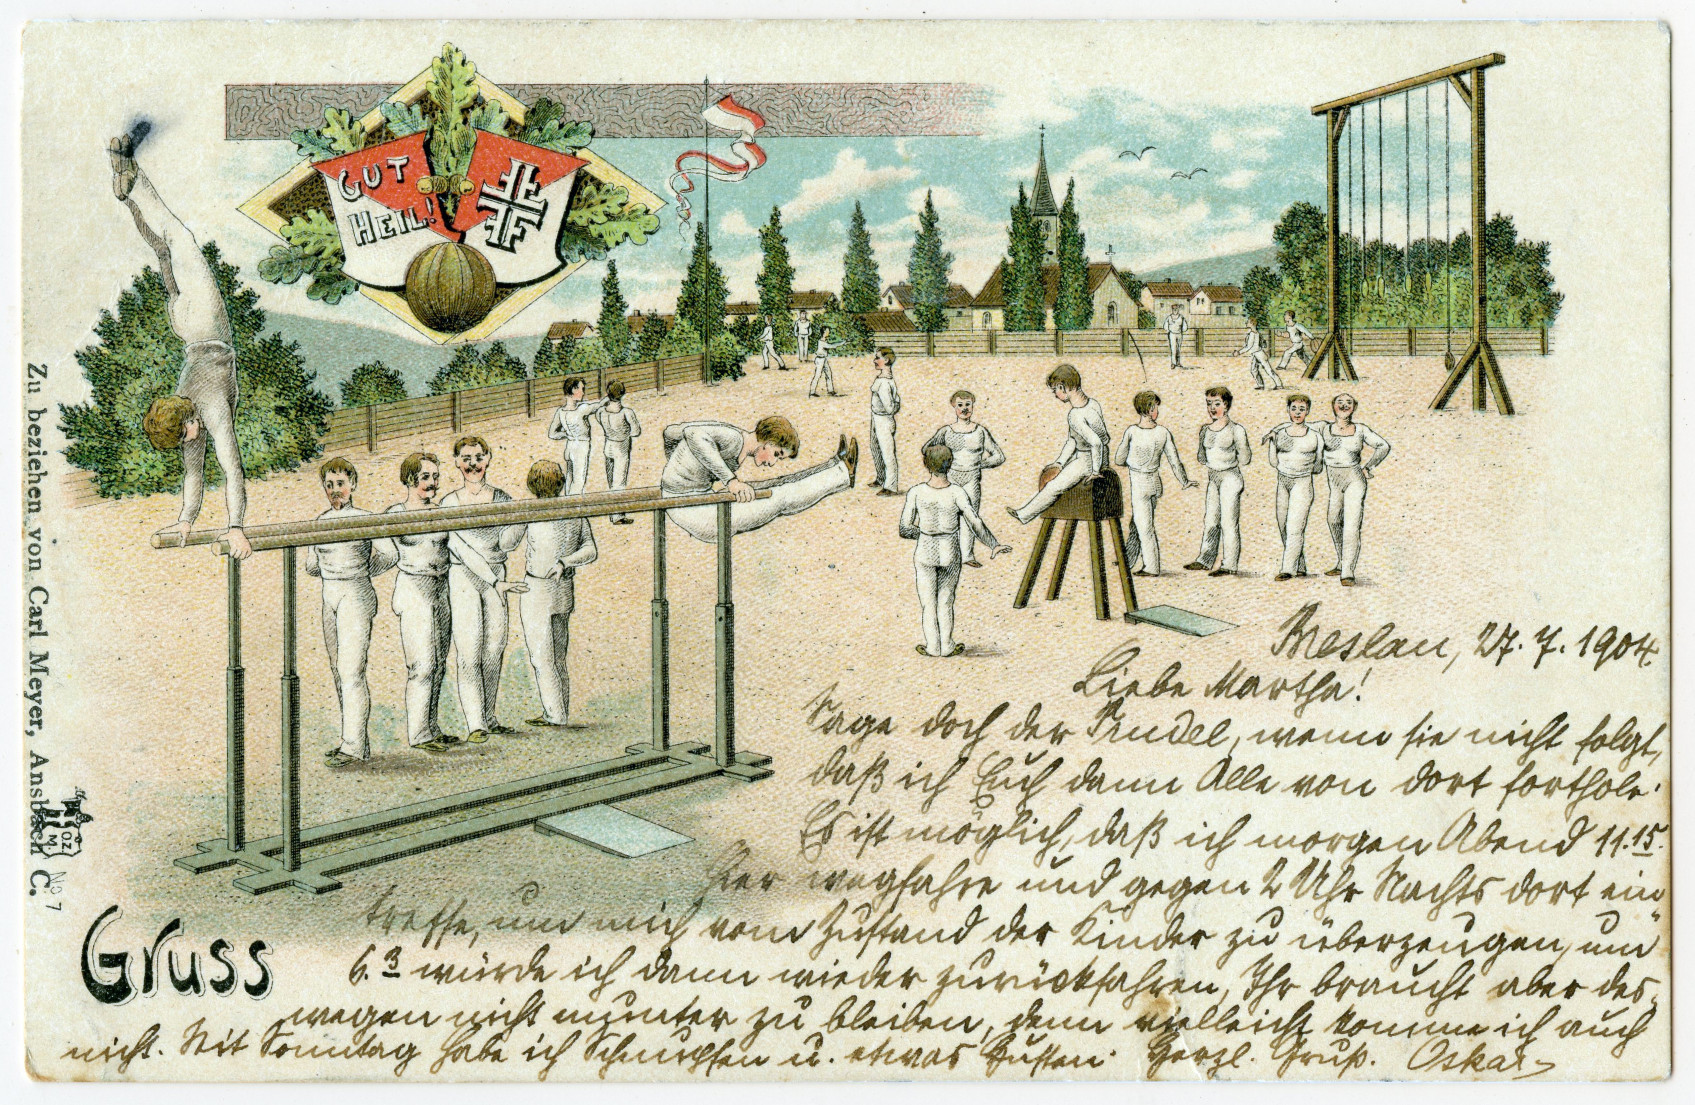 GUT
HEIL!
Zu beziehen von Carl Meyer, Ansbach C.
No 7
Gruss
Breslau, 27. 7. 1904.
Liebe Martha!
Sage doch der Trudel, wenn sie nicht folgt,
daß ich Euch dann Alle von dort forthole.
Es ist möglich, daß ich morgen Abend 11.15.
hier wegfahre und gegen 2 Uhr Nachts dort ein
treffe, um mich vom Zustand der Kinder zu überzeugen, um
6.3 würde ich dann wieder zurückfahren, Ihr braucht aber des-
wegen nicht munter zu bleiben, denn vielleicht komme ich auch
nicht. Seit Sonntag habe ich Schnupfen u. etwas Husten. Herzl. Gruß. Oskar